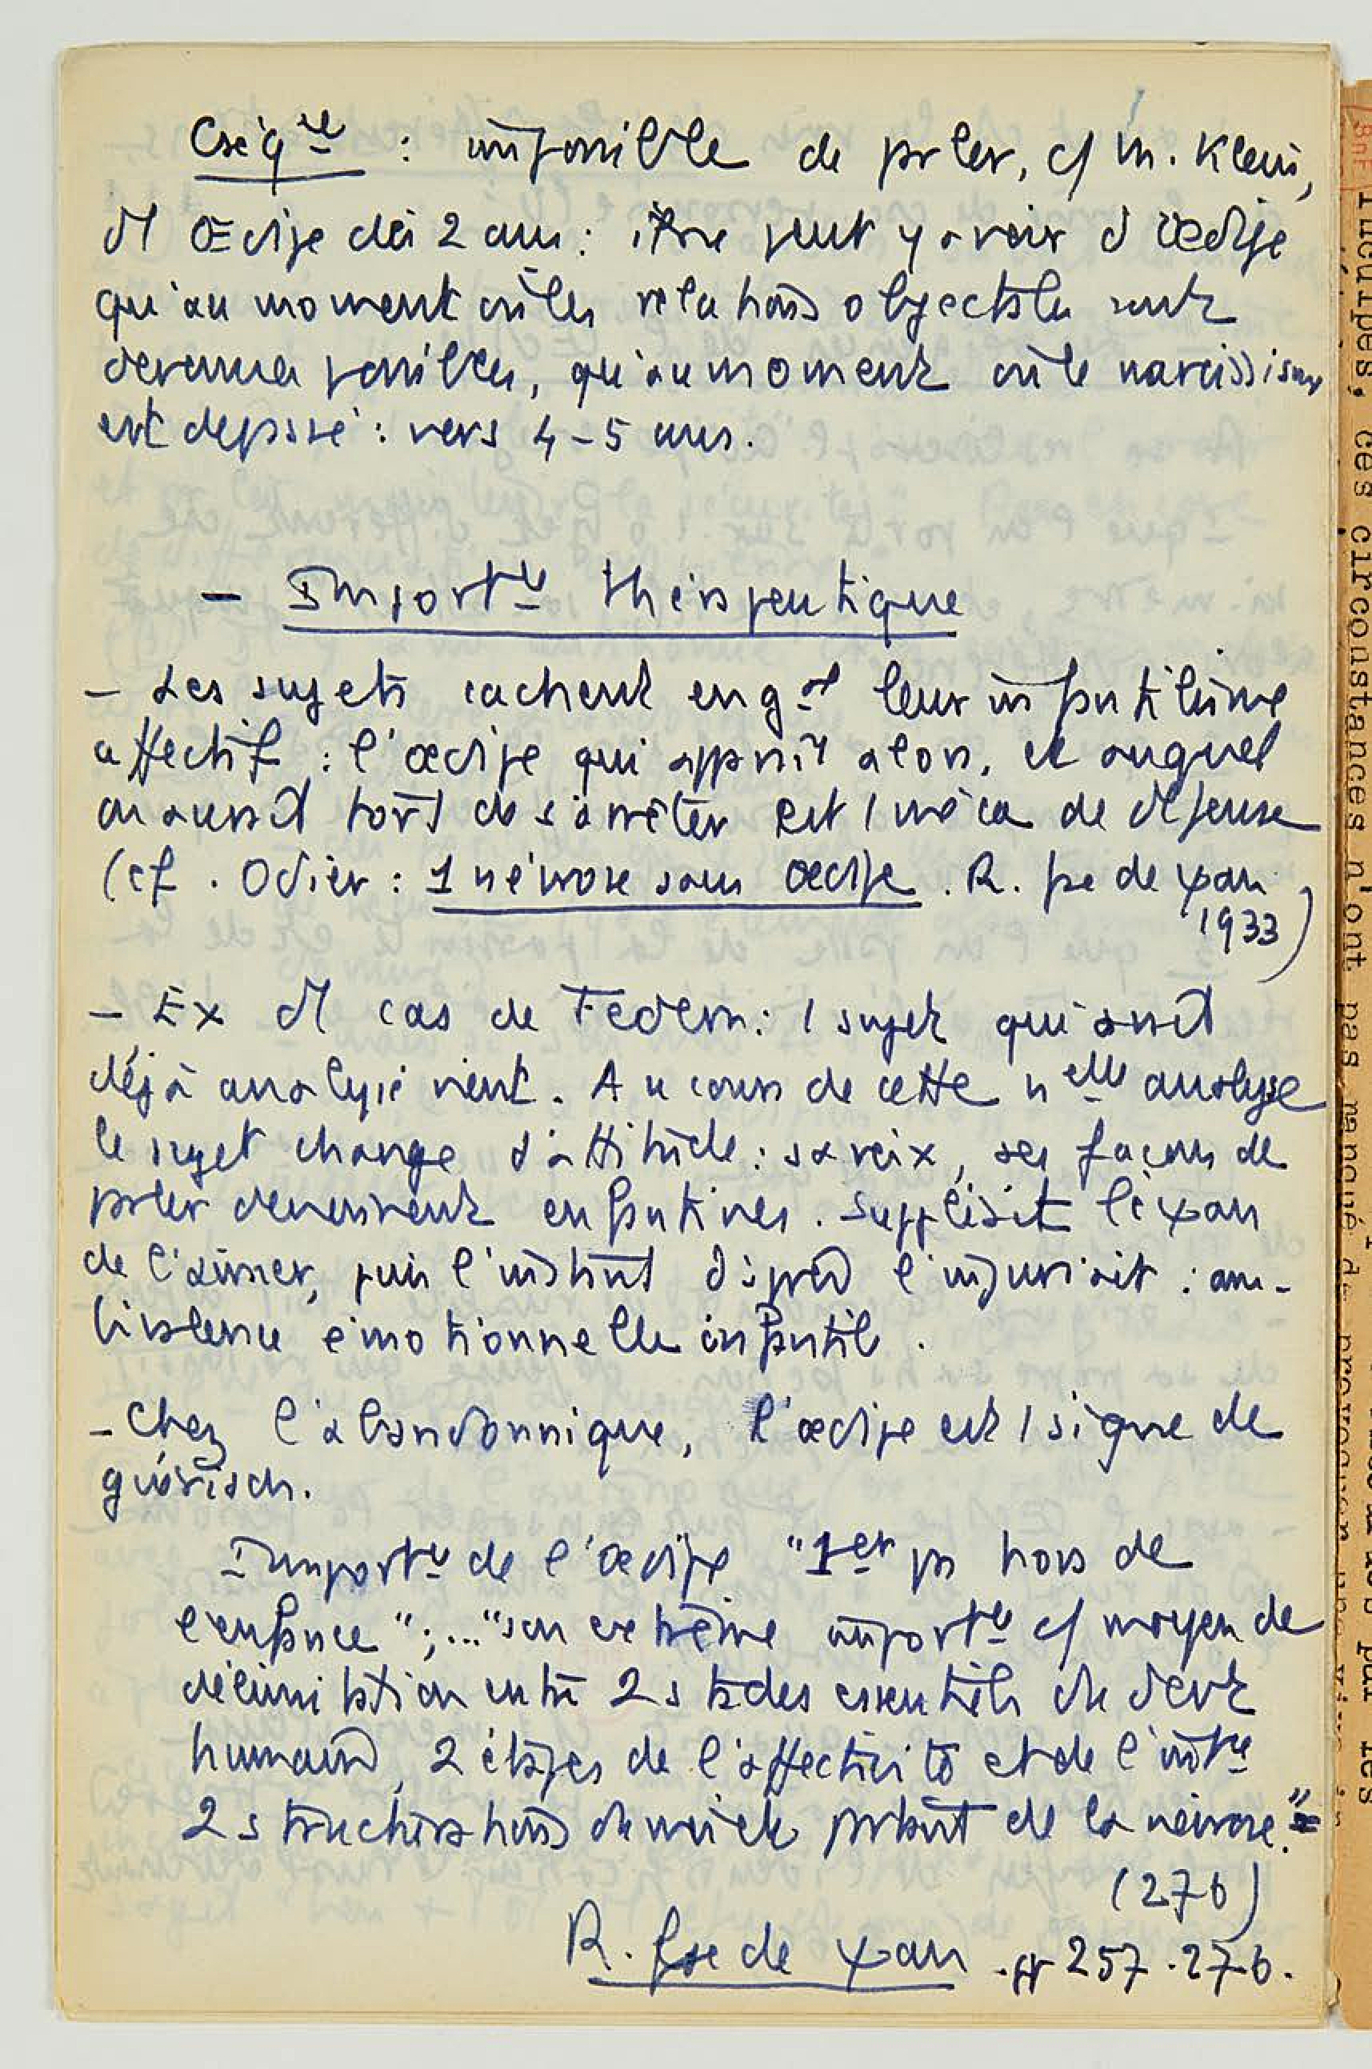 Cséqce : impossible de parler, c/ M. Klein,
d'1 Œdipe dès 2 ans : il ne peut y avoir d'œdipe
qu'au moment où les relations objectales sont
devenues possibles, qu'au moment où le narcissisme
est dépassé : vers 4-5 ans.
- Importce thérapeutique
- Les sujets cachent en gal leur infantilisme
affectif : l'œdipe qui apparaît alors, et auquel
on aurait tort de s'arrêter est 1 méca de défense
(cf. Odier : 1 névrose sans œdipe. R. fse de ψan
1933)
- Ex d'1 cas de Federn : 1 sujet qui avait
déjà analysé vient. Au cours de cette nelle analyse
le sujet change d'attitude : sa voix, ses façons de
parler deviennent enfantines. Suppliait le ψan
de l'aimer, puis l'instant d'après l'injuriait : am-
bivalence émotionnelle infantile.
- Chez l'abandonnique, l'œdipe est 1 signe de
guérison.
Importce de l'œdipe "1er pas hors de
l'enfance" ; ... "son extrême importce c/ moyen de
délimitation entre 2 stades essentiels du devt
humain, 2 étapes de l'affectivité et de l'intce
2 structurations du moi et partant de la névrose."
(276)
R. fse de ψan . pp 257.276.